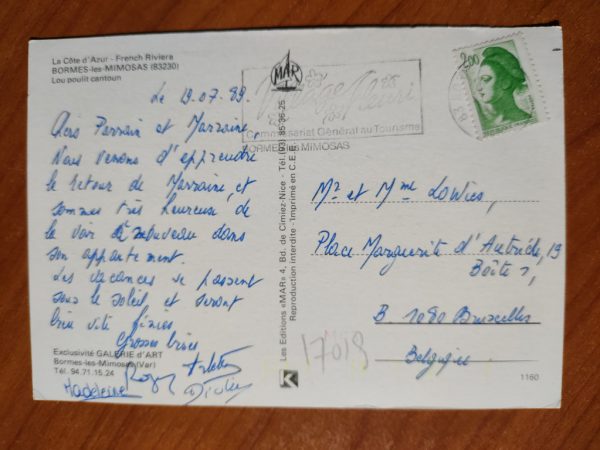 La Côte d'Azur - French Riviera
BORMES-les-MIMOSAS (83230)
Lou poulit cantoun
Le 19.07.89.
Chers Parrain et Marraine,
Nous venons d'apprendre
le retour de Marraine, et
sommes très heureux de
la voir à nouveau dans
son appartement.
Les vacances se passent
sous le soleil, et seront
bien vite finies,
Grosses bises
Exclusivité GALERIE d'ART
Bormes-les-Mimosas (Var)
Tél. 94.71.15.24
Madeleine Roger
MAR
Les Editions «MAR» 4, Bd. de Cimiez-Nice - Tél. (93) 85-36-25
Reproduction interdite - Imprimé en C.E.E.
K
Village fleuri
Commissariat Général au Tourisme
BORMES les MIMOSAS
2,00
83
Mr et Mme Lowies,
Place Marguerite d'Autriche, 19
Boîte 7,
B 1080 Bruxelles
Belgique
17019
1160